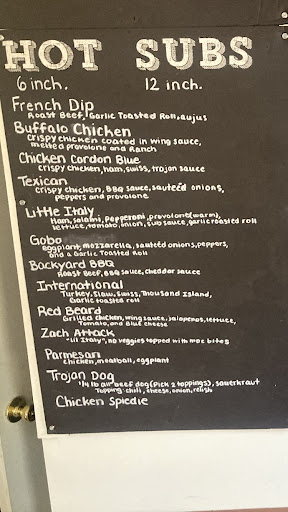 HOT SUBS
6 inch. 12 inch.
French Dip
Roast Beef, Garlic Toasted Roll, aujus
Buffalo Chicken
crispy chicken coated in wing sauce,
melted provolone and Ranch
Chicken Cordon Blue
crispy chicken, ham, swiss, trojan sauce
Texican
crispy chicken, BBQ sauce, sauteéd onions,
peppers and provolone
Little Italy
Ham, salami, pepperoni, provolone (warm),
lettuce, tomato, onion, sub sauce, garlic roasted roll
Gobo
eggplant, mozzarella, sauteéd onions, peppers,
and a Garlic Toasted Roll
Backyard BBQ
Roast Beef, BBQ sauce, cheddar sauce
International
Turkey, Slaw, Swiss, Thousand Island,
Garlic toasted roll
Red Beard
Grilled chicken, wing sauce, jalapenos, lettuce,
Tomato, and Blue cheese
Zach Attack
"Lil Italy", no veggies topped with mac bites
Parmesan
chicken, meatball, eggplant
Trojan Dog
1/4 lb all beef dog (Pick 2 toppings), sauerkraut
Topping: chili, cheese, onion, relish
Chicken Spiedie